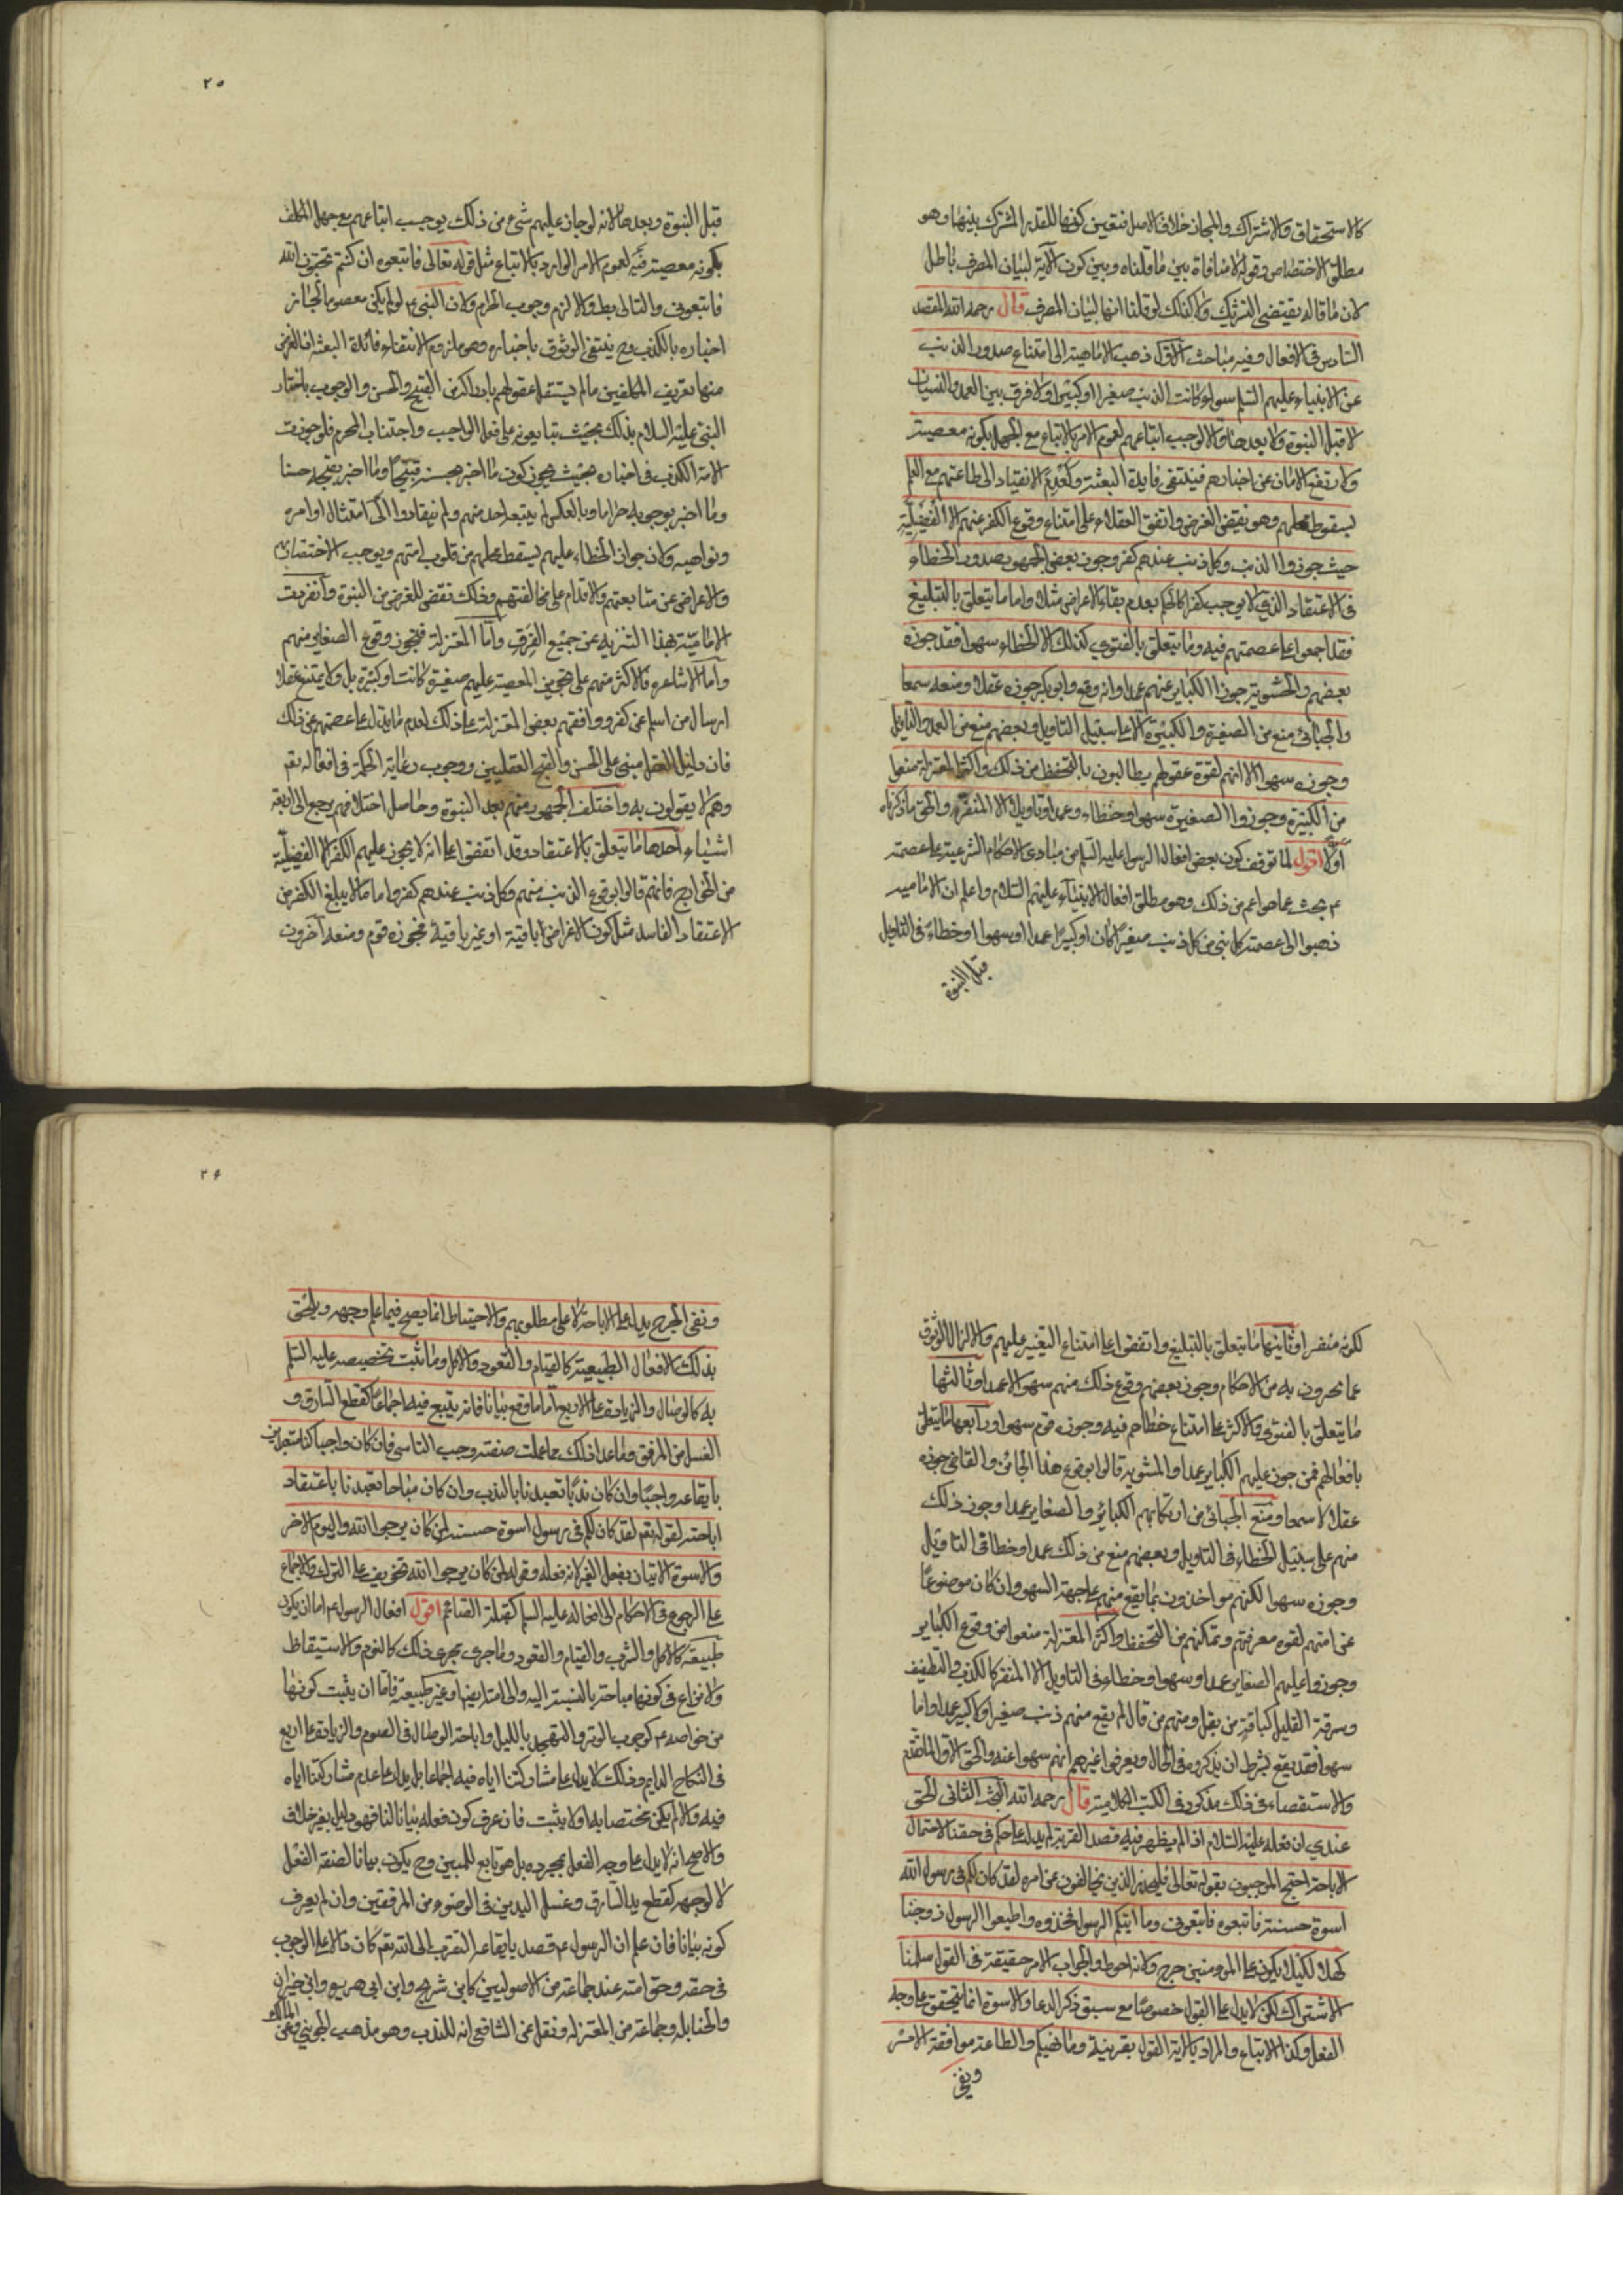 كالاستحقاق والاشتراك والمجاز خلاف الاصل فتعين كونها للقدر المشترك بينها وهو
مطلق الاختصاص وقوله لا منافاة بين ما قلناه وبين كون الآية لبيان المصرف باطل
لان ما قاله يقتضى التشريك ولا كذلك لو قلنا انها لبيان المصرف قال رحمه الله المقصد
السادس فى الافعال وفيه مباحث الاول ذهب الامامية الى امتناع صدور الذنب
عن الانبياء عليهم السلم سواء كانت الذنب صغيرا او كبيرا ولا فرق بين العمد والنسيان
لا قبل النبوة ولا بعدها والا لوجب اتباعهم لعموم الامر بالاتباع مع الجهل بكونه معصية
ولارتفع الامان عن اخبارهم فينتفى فايدة البعثة ولعدم الانقياد الى طاعتهم مع العلم
لسقوط محلهم وهو نقيض الغرض واتفق العقلاء على امتناع وقوع الكفر عنهم الا الفضيلية
حيث جوزوا الذنب وكل ذنب عندهم كفر وجوز بعض الجمهور صدور الخطاء
فى الاعتقاد الذى لا يوجب كفرا كالحكم بعدم بقاء الاعراض مثلا واما ما يتعلق بالتبليغ
فقد اجمعوا على عصمتهم فيه وما يتعلق بالفتوى كذلك الا الخطاء سهوا فقد جوزه
بعضهم والحشوية جوزوا الكباير عنهم عمدا وانه وقع وابو بكر جوزه عقلا ومنعه سمعا
والجبائى منع من الصغيرة والكبيرة الا على سبيل التاويل وبعضهم منع من العمد والتاويل
وجوزه سهوا الا انهم لقوة عقولهم يطالبون بالتحفظ من ذلك واكثر المعتزلة منعوا
من الكبيرة وجوزوا الصغيرة سهوا وخطاء وعمدا وتاويلا الا المنفرة والحق ما ذكرناه
اولا اقول لما توقف كون بعض افعال الرسول عليه السلم من مبادى الاحكام الشرعية على عصمته
م بحث عما هو اعم من ذلك وهو مطلق افعال الانبياء عليهم السلام واعلم ان الامامية
ذهبوا الى عصمة كل نبى من كل ذنب صغيرا كان او كبيرا عمدا او سهوا او خطاء فى التاويل
قبل النبوة
٢٥
قبل النبوة وبعدها لانه لو جاز عليهم شئ من ذلك لوجب اتباعهم مع جهل المكلف
بكونه معصية فيه لعموم الامر الوارد بالاتباع مثل قوله تعالى فاتبعوه ان كنتم تحبون الله
فاتبعونى والتالى بط والا لزم وجوب الحرام ولان النبى ع لو لم يكن معصوما لجاز
اخباره بالكذب وح ينتفى الوثوق باخباره وهو ملزوم لانتفاء فائدة البعثة اذ الغرض
منها تعريف المكلفين ما لم يستقل عقولهم بادراكه من القبيح والحسن والوجوب باخبار
النبى عليه السلام بذلك بحيث يتابعونه على فعل الواجب واجتناب المحرم فلو جوزت
الامة الكذب فى اخباره بحيث يجوز كون ما اخبر بحسنه قبيحا وما اخبر بقبحه حسنا
وما اخبر بوجوبه حراما وبالعكس لم يتبعه احد منهم ولم ينقادوا الى امتثال اوامره
ونواهيه ولان جواز الخطاء عليهم يسقط محلهم من قلوب امتهم ويوجب
والاعراض عن متابعتهم والاقدام على مخالفتهم وذلك نقض للغرض من النبوة وانفردت
الامامية بهذا التنزيه عن جميع الفرق واما المعتزلة فتجوز وقوع الصغاير منهم
واما الاشاعرة فالاكثر منهم على تجويز المعصية عليهم صغيرة كانت او كبيرة بل ولا يمتنع عقلا
ارسال من اسلم عن كفر ووافقهم بعض المعتزلة على ذلك لعدم ما يدل على عصمتهم عن ذلك
فان دليل العقل مبنى على الحسن والقبح العقليين ووجوب رعاية الحكمة فى افعاله تعم
وهم لا يقولون به واختلف الجمهور منهم بعد النبوة وحاصل اختلافهم يرجع الى اربعة
اشياء احدها ما يتعلق بالاعتقاد وقد اتفقوا على انه لا يجوز عليهم الكفر الا الفضيلية
من الخوارج فانهم قالوا بوقوع الذنب منهم وكل ذنب عندهم كفر واما ما لا يبلغ الكفر من
الاعتقاد الفاسد مثل كون الاعراض باقية او غير باقية فجوزه قوم ومنعه آخرون
لكونه منفرا وثانيها ما يتعلق بالتبليغ واتفقوا على امتناع التغيير عليهم والا لزال الوثوق
عما يخبرون به من الاحكام وجوز بعضهم وقوع ذلك منهم سهوا لا عمدا وثالثها
ما يتعلق بالفتوى والاكثر على امتناع خطاهم فيه وجوزه قوم سهوا ورابعها ما يتعلق
بافعالهم فمن جوز عليهم الكباير عمدا والحشوية قالوا بوقوع هذا الجائز والقاضى جوزه
عقلا لا سمعا ومنع الجبائى من ارتكابهم الكبائر والصغاير عمدا وجوز ذلك
منهم على سبيل الخطاء فى التاويل وبعضهم منع من ذلك عمدا وخطا فى التاويل
وجوزه سهوا لكنهم مواخذون بما يقع منهم على جهة السهو وان كان موضوعا
عن امتهم لقوة معرفتهم وتمكنهم من التحفظ واكثر المعتزلة منعوا من وقوع الكباير
وجوزوا عليهم الصغاير عمدا وسهوا وخطاء فى التاويل الا المنفر كالكذب والتطفيف
وسرقة القليل كباقة من بقل ومنهم من قال لم يقع منهم ذنب صغيرا ولا كبيرا عمدا واما
سهوا فقد يقع بشرط ان يذكروه فى الحال ويعرفوا غيرهم انهم سهوا عنه والحق الاول لما تقدم
والاستقصاء فى ذلك مذكور فى الكتب الكلامية قال رحمه الله البحث الثانى الحق
عندي ان فعله عليه السلام اذا لم يظهر فيه قصد القربة لم يدل على حكم فى حقنا لاحتمال
الاباحة احتج الموجبون بقوله تعالى فليحذر الذين يخالفون عن امره لقد كان لكم فى رسول الله
اسوة حسنة فاتبعوه فاتبعونى وما آتيكم الرسول فخذوه واطيعوا الرسول زوجنا
كها لكيلا يكون على المومنين حرج ولانه احوط والجواب الامر حقيقة فى القول سلمنا
الاشتراك لكن لا يدل على القول خصوصا مع سبق ذكر الدعا والاسوة انما يتحقق على وجه
الفعل وكذا الاتباع والمراد بالاية القول بقرينة وما نهيكم والطاعة موافقة الامر
ونفى
٢٦
ونفى الحرج يدل على الاباحة لا على مطلوبهم والاحتياط انما يصح فيما علم وجهه ويلحق
بذلك الافعال الطبيعية كالقيام والقعود والاكل وما ثبت تخصيصه عليه السلم
به كالوصال والزيادة على الاربع اما ما وقع بيانا فانه يتبع فيه اجماعا كقطع السارق و
الغسل من المرفق وما عدا ذلك مما علمت صفته وجب التاسى فان كان واجبا كنا متعبدين
بايقاعه واجبا وان كان ندبا تعبدنا بالندب وان كان مباحا تعبدنا باعتقاد
اباحته لقوله تعم لقد كان لكم فى رسول اسوة حسنة لمن كان يرجوا الله واليوم الاخر
والاسوة الاتيان بفعل الغير لانه فعله وقوله لمن كان يرجوا الله تخويف على الترك والاجماع
على الرجوع فى الاحكام الى افعاله عليه السلم كقبلة الصائم اقول افعال الرسول ع اما ان يكون
طبيعة كالاكل والشرب والقيام والقعود وما جرى مجرى ذلك كالنوم والاستيقاظ
ولا نزاع فى كونها مباحة بالنسبة اليه والى امته ايضا او غير طبيعة فاما ان يثبت كونها
من خواصه ع كوجوب الوتر والتهجد بالليل واباحة الوصال فى الصوم والزيادة على اربع
فى النكاح الدايم وذلك لا يدل على مشاركتنا اياه فيه اجماعا بل يدل على عدم مشاركتنا اياه
فيه والا لم يكن مختصا به او لا يثبت فان عرف كون فعله بيانا لنا فهو دليل بغير خلاف
والاصح انه لا يدل على وجه الفعل بمجرده بل هو تابع للمبين وح يكون بيانا لصفة الفعل
لا لوجهه كقطع يد السارق وغسل اليدين فى الوضوء من المرفقين وان لم يعرف
كونه بيانا فان علم ان الرسول ع قصد بايقاعه التقرب الى الله تعم كان دالا على الوجوب
فى حقه وحق امته عند جماعة من الاصوليين كابن شريح وابن ابى هريره وابن خيران
والحنابلة وجماعة من المعتزله ونقل عن الشافعى انه للندب وهو مذهب الجوينى وعن المالك